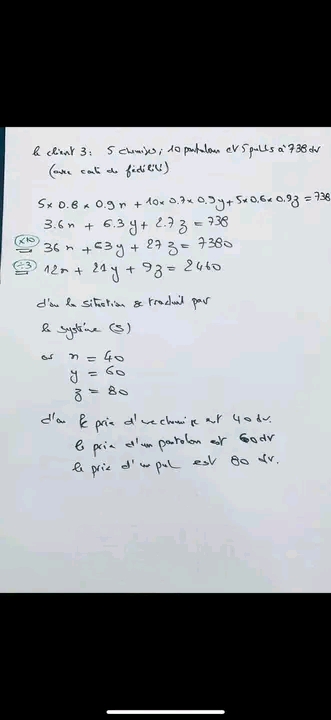 le client 3: 5 chemises, 10 pantalon et 5 pulls à 738dr
(avec carte de fidélité)
5x0.8x0.9x + 10x0.7x0.9y + 5x0.6x0.9z = 738
3.6x + 6.3y + 2.7z = 738
(x10) 36x + 63y + 27z = 7380
(÷3) 12x + 21y + 9z = 2460
d'où la situation est traduit par
le système (S)
or x = 40
y = 60
z = 80
d'où le prix d'une chemise est 40 dr.
le prix d'un pantalon est 60dr
le prix d'un pul est 80 dr.